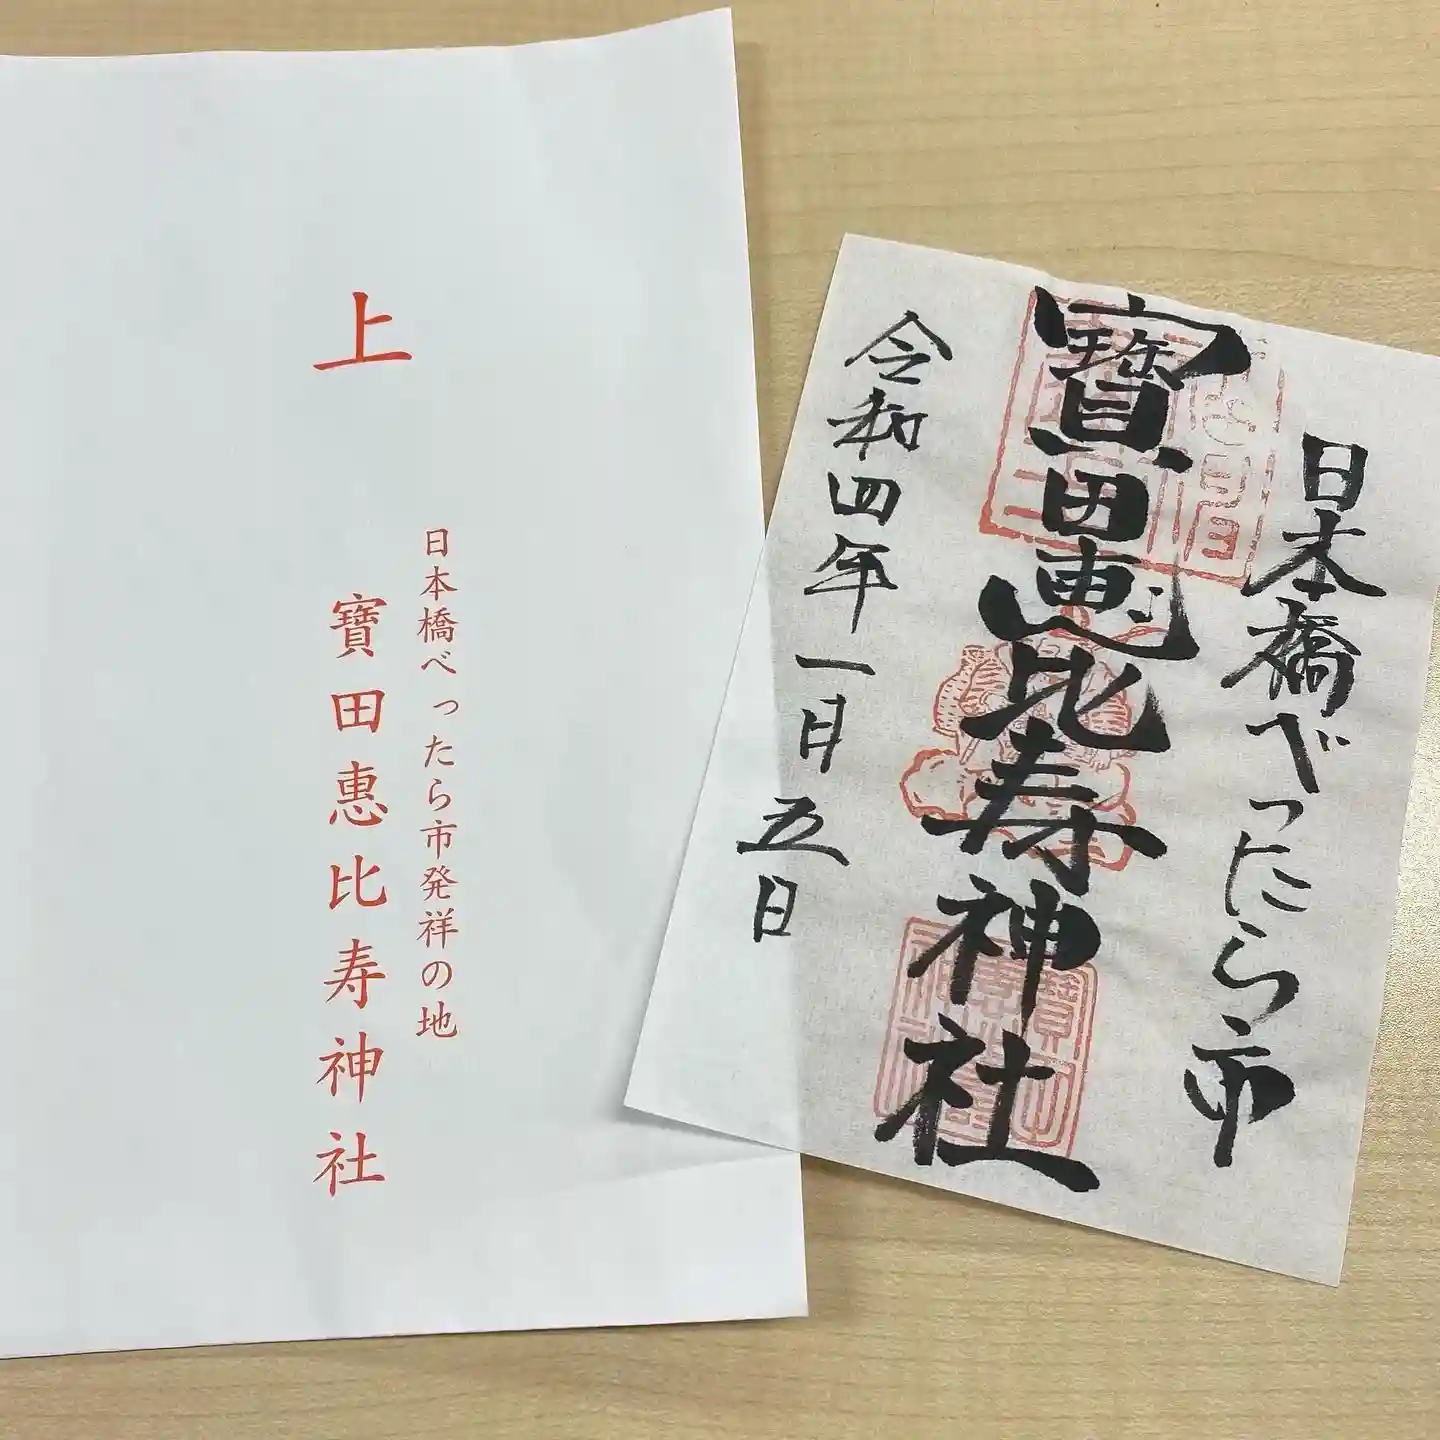 上
日本橋べったら市発祥の地
寶田恵比寿神社
日本橋べったら市
寶田恵比寿神社
令和四年一月五日